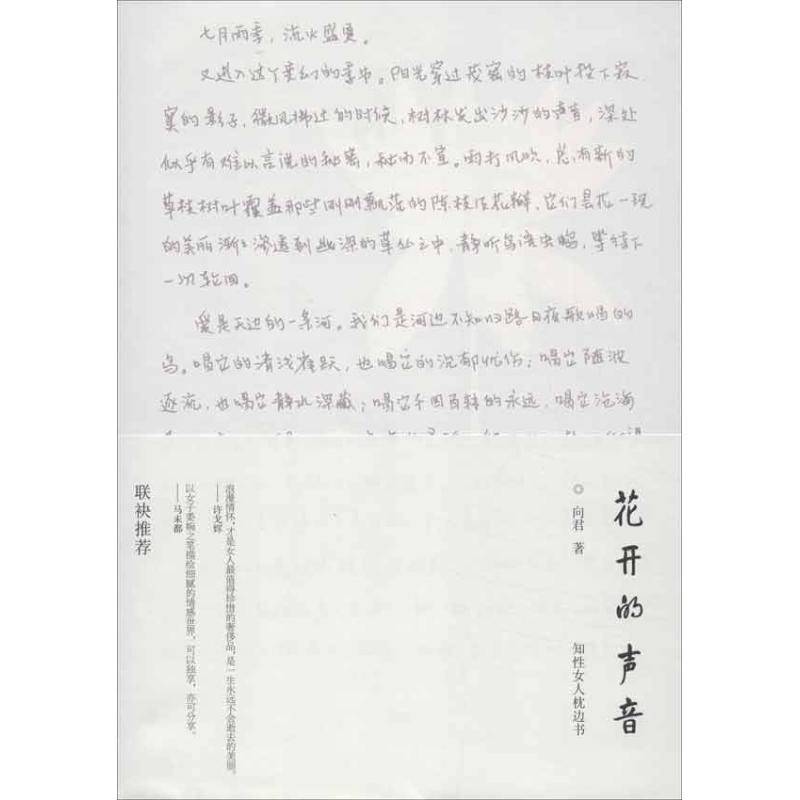 七月雨季，流火盛夏。
又进入这个变幻的季节。阳光穿过茂密的枝叶投下寂
寞的影子，微风拂过的时候，树林发出沙沙的声音，深处
似乎有难以言说的秘密，秘而不宣。雨打风吹，总有新的
草枝树叶覆盖那些刚刚飘落的陈枝落花瓣，它们昙花一现
的美丽渐渐渗透到幽深的草丛之中，静听鸟语虫鸣，等待下
一次轮回。
爱是天边的一条河。我们是河边不知归路日夜歌唱的
鸟。唱它的清浅雀跃，也唱它的沉郁忧伤；唱它随波
逐流，也唱它静水深藏；唱它千回百转的永远，唱它沧海
花开的声音
◎向君 著
知性女人枕边书
浪漫情怀，才是女人最值得珍惜的奢侈品，是一生永远不会逝去的美丽。
——许戈辉
以女子委婉之笔描绘细腻的情感世界，可以独享，亦可分享。
——马未都
联袂推荐